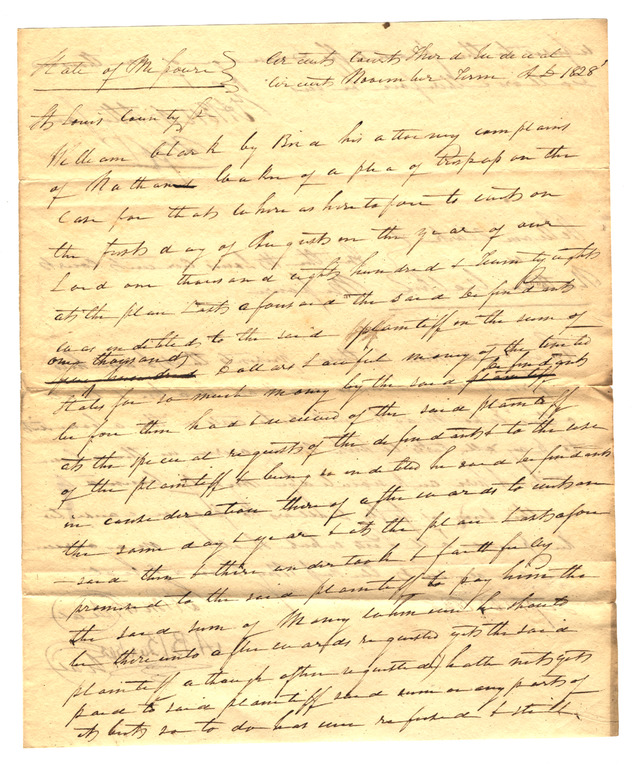 State of Missouri } Circuit Court Third Judicial
Circuit November Term A D 1828
St Louis County
William Clark by his attorney complains
of Nathan of a plea of trespass on the
Case for that whereas heretofore to wit on
the first day of August in the year of our
Lord one thousand eight hundred & twenty eight
at the place last aforesaid the said Defendant
was indebted to the said plaintiff in the sum of
one thousand
five hundred Dollars Lawful money of the United
defendant
States for so much money by the said plaintiff
before then had & received of the said plaintiff
at the special request of the defendant & to the use
of the plaintiff & being so indebted he said defendant
in consideration thereof afterwards to wit on
the same day & year & at the place last afore
-said then & there undertook & faithfully
promised to the said plaintiff to pay him the
the said sum of Money whenever he should
be thereunto afterwards requested yet the said
plaintiff although often requested) hath not yet
paid to said plaintiff said sum or any part of
it but so to do has ever refused & still